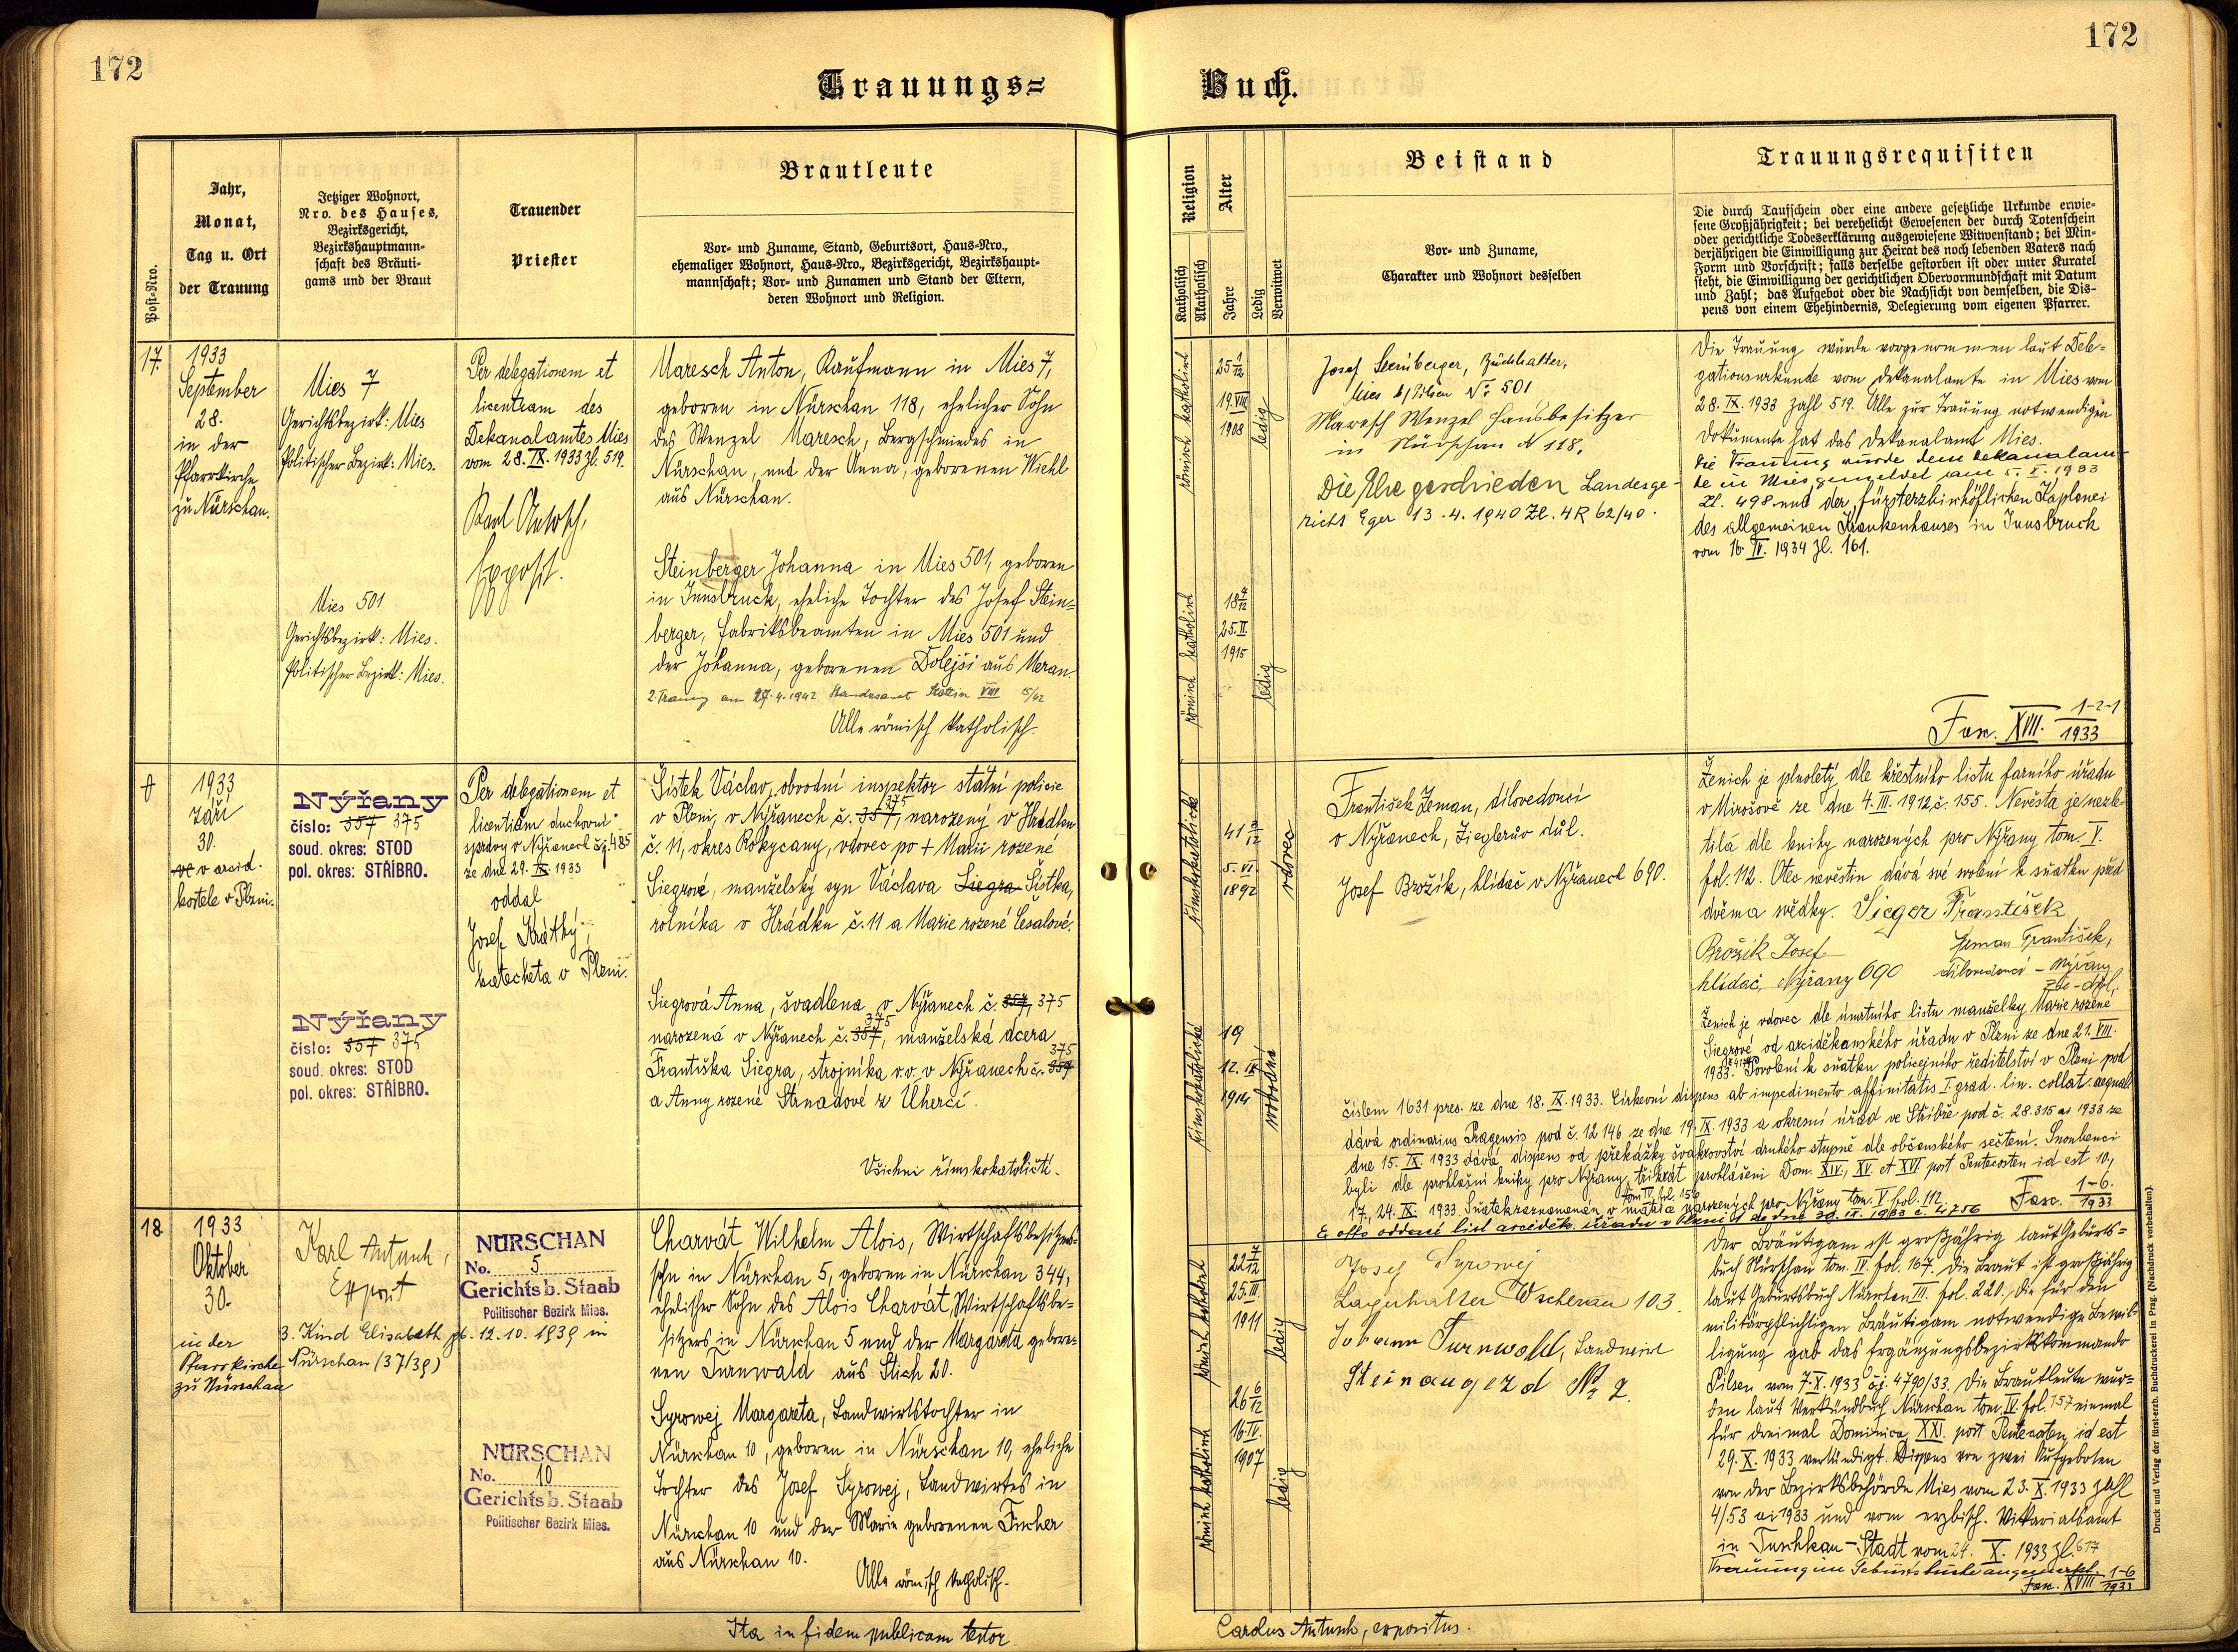 172
172
Trauungs=
Buch.
Post-Nro.
Jahr,
Monat,
Tag u. Ort
der Trauung
Jetziger Wohnort,
Nro. des Hauses,
Bezirksgericht,
Bezirkshauptmann-
schaft des Bräuti-
gams und der Braut
Trauender
Priester
Brautleute
Vor- und Zuname, Stand, Geburtsort, Haus-Nro.,
ehemaliger Wohnort, Haus-Nro., Bezirksgericht, Bezirkshaupt-
mannschaft; Vor- und Zunamen und Stand der Eltern,
deren Wohnort und Religion.
Religion
Katholisch
Akatholisch
Alter
Jahre
Ledig
Verwitwet
Beistand
Vor- und Zuname,
Charakter und Wohnort desselben
Trauungsrequisiten
Die durch Taufschein oder eine andere gesetzliche Urkunde erwie-
sene Großjährigkeit; bei verehelicht Gewesenen der durch Totenschein
oder gerichtliche Todeserklärung ausgewiesene Witwenstand; bei Min-
derjährigen die Einwilligung zur Heirat des noch lebenden Vaters nach
Form und Vorschrift; falls derselbe gestorben ist oder unter Kuratel
steht, die Einwilligung der gerichtlichen Obervormundschaft mit Datum
und Zahl; das Aufgebot oder die Nachsicht von demselben, die Dis-
pens von einem Ehehindernis, Delegierung vom eigenen Pfarrer.
17.
1933
September
28.
in der
Pfarrkirche
zu Nürschan.
Mies 7
Gerichtsbezirk: Mies
Politischer Bezirk: Mies.
Mies 501
Gerichtsbezirk: Mies.
Politischer Bezirk: Mies.
Per delegationem et
licentiam des
Dekanalamtes Mies
vom 28. IX. 1933 Zl. 519.
Karl Antosch,
Exposit.
Maresch Anton, Kaufmann in Mies 7,
geboren in Nürschan 118, ehelicher Sohn
des Wenzel Maresch, Bergschmiedes in
Nürschan, und der Anna, geborenen Wiehl
aus Nürschan.
Steinberger Johanna in Mies 501, geboren
in Innsbruck, eheliche Tochter des Josef Stein=
berger, Fabriksbeamten in Mies 501 und
der Johanna, geborenen Dolejši aus Meran.
2. Trauung am 27.4.1942 Standesamt Stettin VIII 15/42
Alle römisch katholisch.
römisch katholisch
25 1/12
19. VIII
1908
ledig
römisch katholisch
18 7/12
25. II.
1915
ledig
Josef Steinberger, Buchhalter,
Mies b/Pilsen No. 501
Maresch Wenzel Hausbesitzer
in Nürschan N 118.
Die Ehe geschieden Landesge-
richt Eger 13.4.1940 Zl. 4R 62/40.
Die Trauung wurde vorgenommen laut Dele=
gationsurkunde vom Dekanalamte in Mies vom
28. IX. 1933 Zahl 519. Alle zur Trauung notwendigen
Dokumente hat das Dekanalamt Mies.
Die Trauung wurde dem Dekanalam-
te in Mies gemeldet am 5. X. 1933
Zl. 498 und der fürsterzbischöflichen Kaplanei
des allgemeinen Krankenhauses in Innsbruck
vom 16. IV. 1934 Zl. 161.
Fasc. XVII. 1-2-1
1933
1933
Září
30.
ve v arcid.
kostele v Plzni.
Nýřany
číslo: 357 375
soud. okres: STOD
pol. okres: STŘÍBRO.
Nýřany
číslo: 357 375
soud. okres: STOD
pol. okres: STŘÍBRO.
Per delegationem et
licentiam duchovní
správy v Nýřanech čj. 485
ze dne 29. IX. 1933
oddal
Josef Krátký,
katecheta v Plzni.
Šístek Václav, obvodní inspektor státní policie
v Plzni, v Nýřanech č. 357, 375 narozený v Hrádku
č. 11, okres Rokycany, vdovec po + Marii rozené
Siegrové, manželský syn Václava Siegra Šístka,
rolníka v Hrádku č. 11 a Marie rozené Česalové.
Siegrová Anna, švadlena v Nýřanech č. 357, 375
narozená v Nýřanech č. 357, 375 manželská dcera
Františka Siegra, strojníka v.v. v Nýřanech č. 357 375
a Anny rozené Strnadové z Úherců.
Všichni římskokatoličtí.
římskokatolické
41 3/12
5. VI.
1892
vdovec
římskokatolické
19
12. IX
1914
svobodná
František Zeman, dílovedoucí
v Nýřanech, Zieglerův důl.
Josef Brožík, hlídač v Nýřanech 690.
Ženich je plnoletý dle křestního listu farního úřadu
v Mirošově ze dne 4. III. 1912 č. 155. Nevěsta je nezle-
tilá dle knihy narozených pro Nýřany tom. V.
fol. 112. Otec nevěstin dává své svolení k sňatku před
dvěma svědky. Sieger František
Brožík Josef
hlídač, Nýřany 690
Zeman František,
dílovedoucí - Nýřany
Ženich je vdovec dle úmrtního listu manželky Marie rozené
Siegrové od arciděkanského úřadu v Plzni ze dne 21. VIII.
1933. Povolení k sňatku policejního ředitelství v Plzni pod
číslem 1631 pres. ze dne 18. IX. 1933. Církevní dispens ab impedimento affinitatis I. grad. lin. collat. aequal.
dává ordinarius Pragensis pod č. 12146 ze dne 19. IX. 1933 a okresní úřad ve Stříbře pod č. 28.315 ai 1933 ze
dne 15. IX. 1933 dává dispens od překážky švakrovství druhého stupně dle občanského sečtení. Snoubenci
byli dle prohlašní knihy pro Nýřany tom IV. fol. 156 třikrát prohlášeni Dom. XIV., XV. et XVI. post Pentecosten id est 10.,
17., 24. IX. 1933. Sňatek zaznamenán v matrice narozených pro Nýřany tom. V. fol. 112. Fasc. 1-6.
1933
Ex offo oddací list arciděk. úřadu v Plzni ze dne 30. IX. 1933 č. 4756
18.
1933
Oktober
30.
in der
Pfarrkirche
zu Nürschau
Karl Antusch,
Exposit
3. Kind Elisabeth gb. 12.10.1939 in
Nürschan (37/39)
NÜRSCHAN
No. 5
Gerichtsb. Staab
Politischer Bezirk Mies.
NÜRSCHAN
No. 10
Gerichtsb. Staab
Politischer Bezirk Mies.
Charvát Wilhelm Alois, Wirtschaftsbesitzers=
sohn in Nürschan 5, geboren in Nürschan 344,
ehelicher Sohn des Alois Charvát, Wirtschaftsbe=
sitzers in Nürschan 5 und der Margareta gebore=
nen Turnwald aus Stich 20.
Syrowej Margareta, Landwirtstochter in
Nürschan 10, geboren in Nürschan 10, eheliche
Tochter des Josef Syrowej, Landwirtes in
Nürschan 10 und der Marie geborenen Fischer
aus Nürschan 10.
Alle römisch katholisch.
römisch katholisch
22 7/12
25. III.
1911
ledig
römisch katholisch
26 6/12
16. IV.
1907
ledig
Josef Syrowej
Lagerhalter Wscherau 103.
Johann Turnwald, Landwirt
Steinaugezd No. 2.
Der Bräutigam ist großjährig laut Geburts=
buch Nürschan tom. IV. fol. 167. Die Braut ist großjährig
laut Geburtsbuch Nürschan III. fol. 220. Die für den
militärpflichtigen Bräutigam notwendige Bewil=
ligung gab das Ergänzungsbezirkskommando
Pilsen vom 7. X. 1933 čj. 4790/33. Die Brautleute wur=
den laut Verkündbuch Nürschan tom. IV. fol. 157 einmal
für dreimal Dominica XXI. post Pentecosten, id est
29. X. 1933 verkündigt. Dispens von zwei Aufgeboten
von der Bezirksbehörde Mies vom 23. X. 1933 Zahl
4/53 ai 1933 und vom erzbisch. Vikariatsamt
in Tuschkau-Stadt vom 24. X. 1933 Zl. 617
Trauung im Geburtsbuche angemerkt.
Fasc. XVIII 1-6
1933
Ita in fidem publicam testor
Carolus Antusch, expositus.
Druck und Verlag der fürst-erzb. Buchdruckerei in Prag. (Nachdruck vorbehalten).